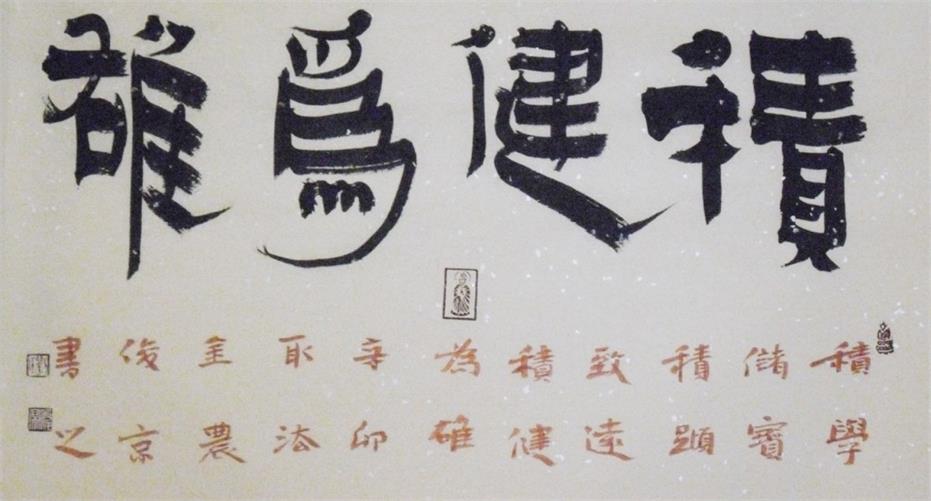 積健爲雄
積學
儲寶
積蹞
致遠
積健
為雄
辛卯
取法
金農
俊京
書之